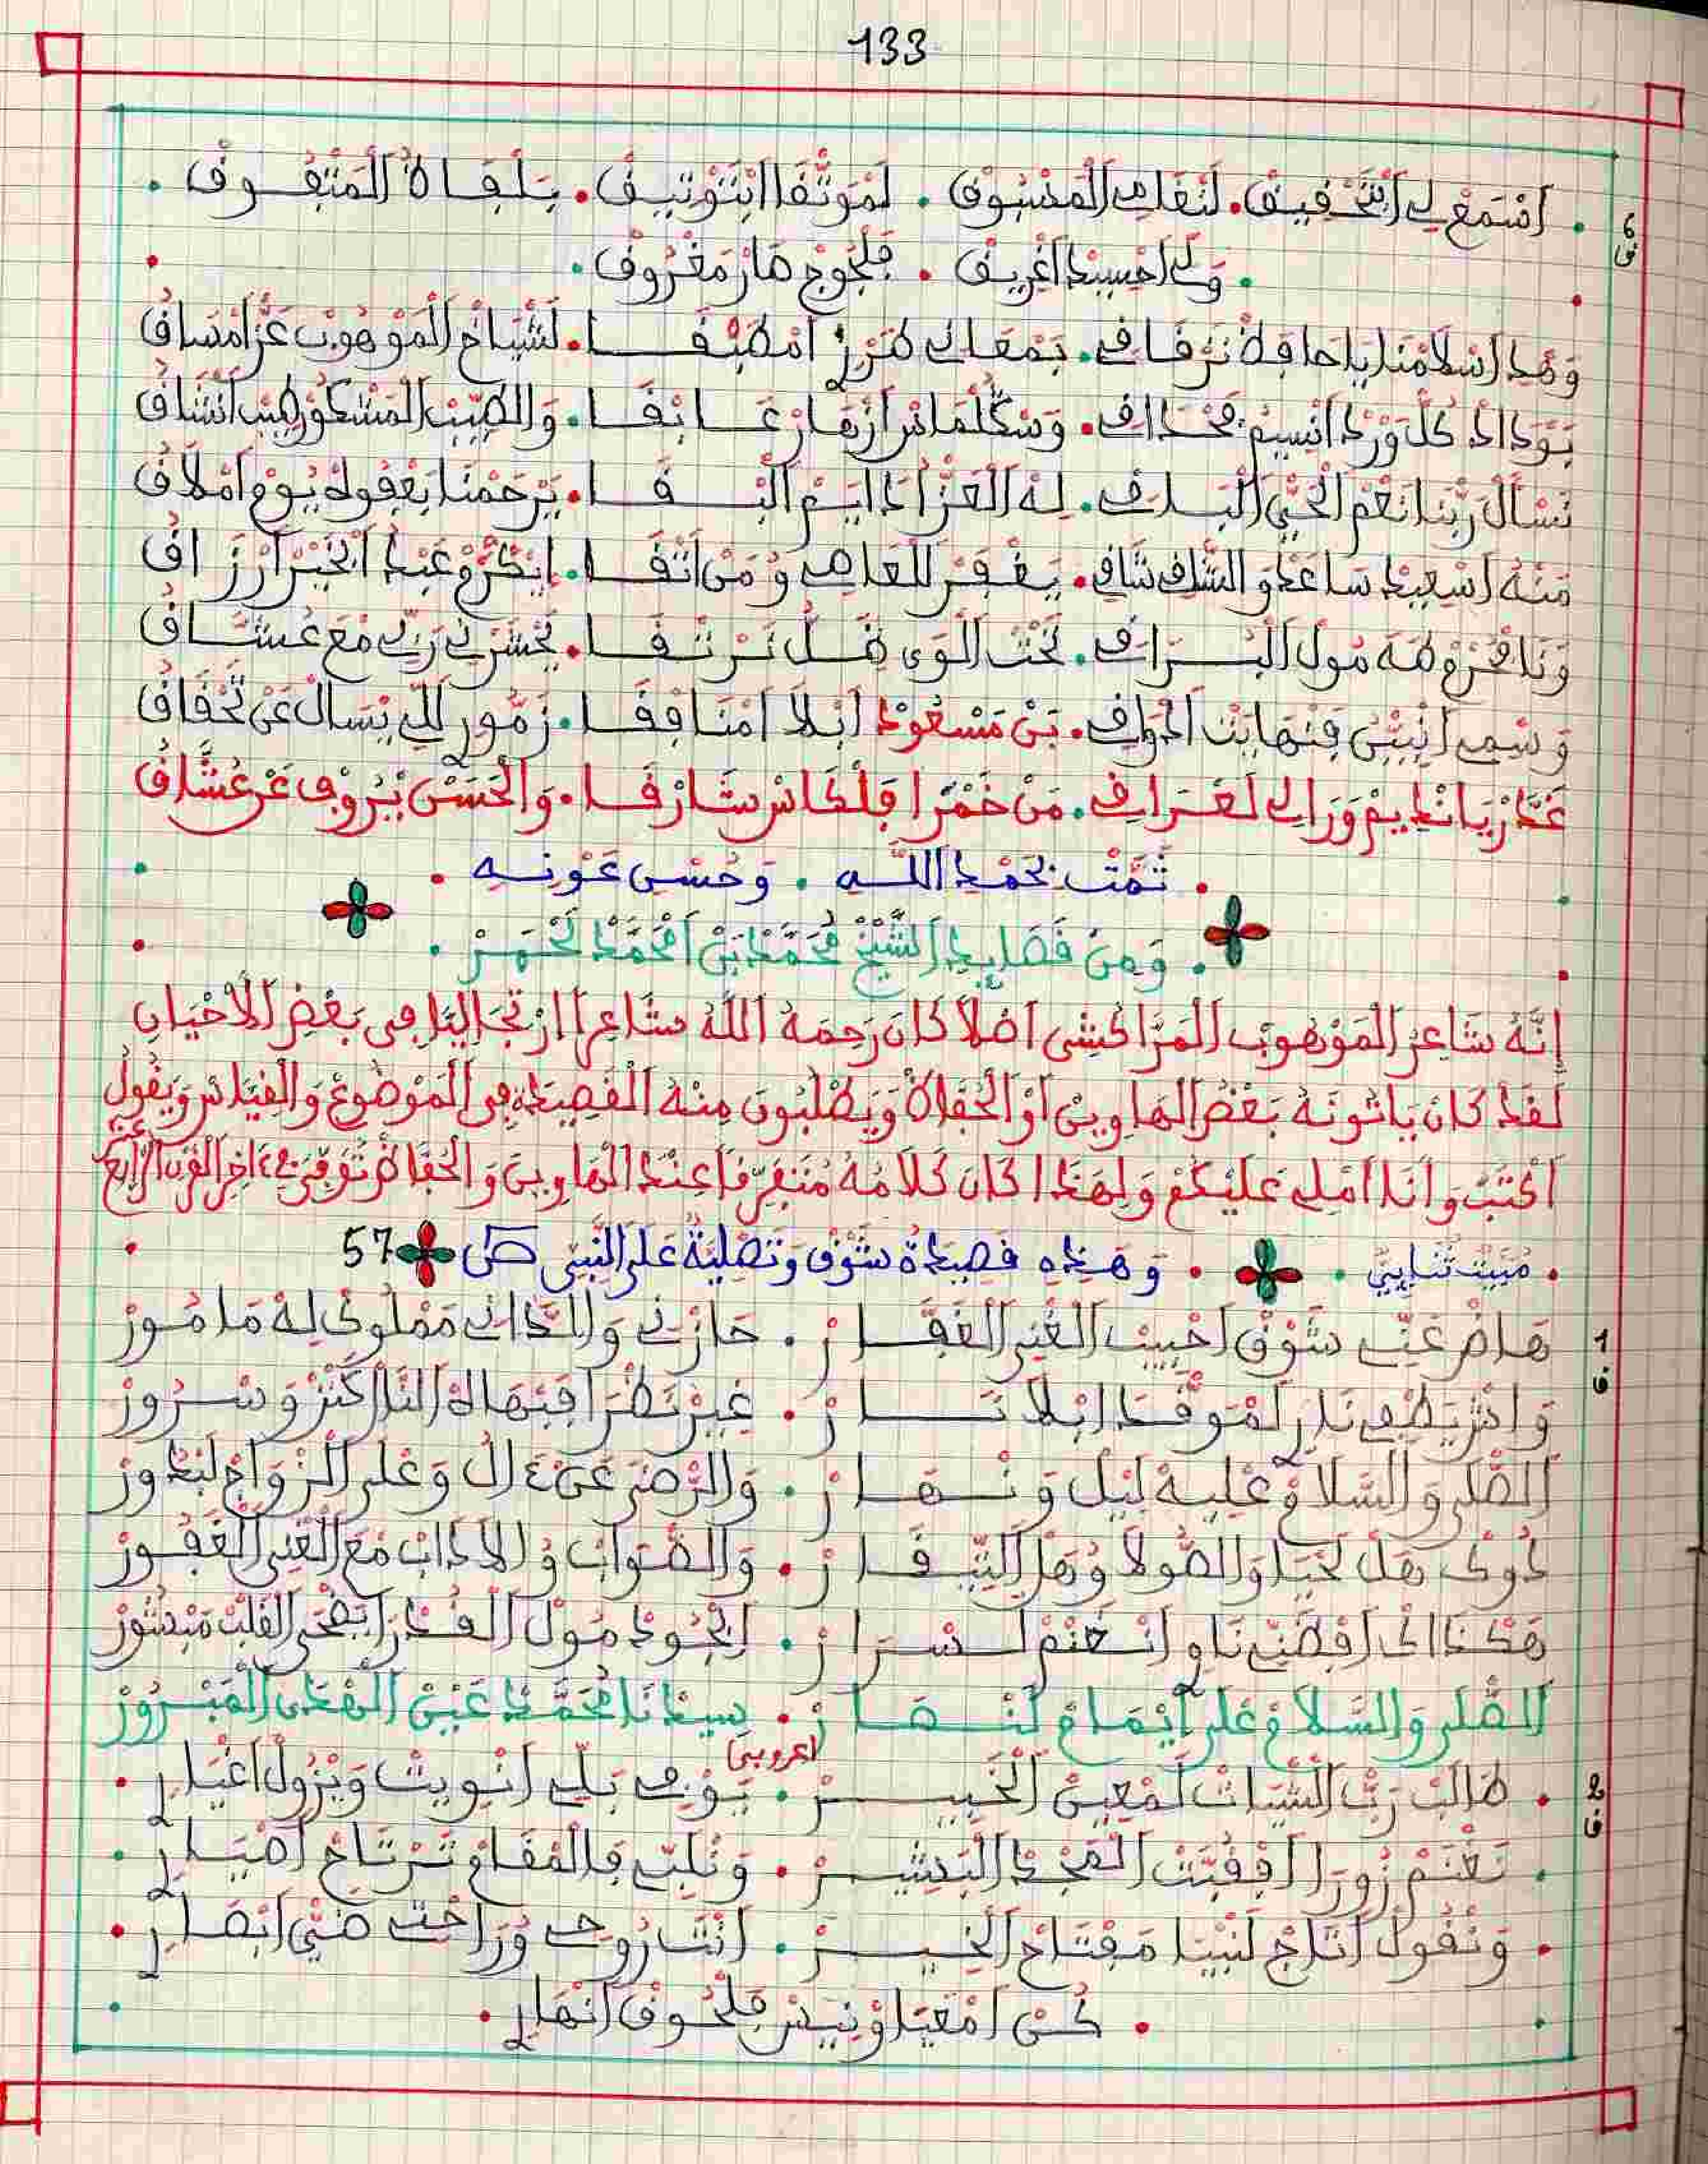 133
6 ق
اسْتَمَعْ لِي ابْتَحْقِيقْ. لَنْفَاسِ الْمَسْبُوقْ. لَمْوَثْقَا ابْتَوْتِيقْ. بَلْقَاهُ الْمَتْفُوقْ.
وَلِي احْسِيدْ اغْرِيقْ. فَلْجُوجْ صَارْ مَغْرُوقْ.
وَهْدِ اسْلَامْنَا يَا حَافِظْ تَرْقَاقِي. بَمْعَانِي طَرْزْ امْطَبْقَا. لَشْيَاخْ الْمَوْهُوبْ عَزّ امْصَاقْ
بَوْدَادْ كُلّ وَرْدْ انْسِيمْ فَحْدَاقِي. وَسْكُلْمَاسْ ازْهَارْ عَابْقَا. وَالطِّيبْ الْمَشْكُورْ طِيبْ انْشَاقْ
نَسْأَلْ رَبّنَا نَعْمْ الْحَيّ الْبَاقِي. لِهْ الْعَزّ ادَايَمْ الْبْقَا. يَرْحَمْنَا بَعْفُوهْ يُومْ امْلَاقْ
مَنّهْ اسْعِيدْ سَاعْدْ وَالشَّاقِي شَاقِي. يَغْفِرْ لَلْعَاصِي وُمَنْ اتْقَا. ايْكَرّمْ عَبْدْ الْخَيْرْ ارْزَاقْ
وَنَا فَحْرْمْ طَهَ مُولْ الْبُرَاقِ. تَحْتْ الْوَى ظَلّ نَرْتْقَا. يَحْشَرْنِي رَبِّي مْعَ عُشّاقْ
وَسْمِي انْبَيّنْ فَنْهَايْتْ الْحْوَاقِي. بَنْ مَسْعُودْ ابْلَا امْنَافْقَا. زَمُّورِي لَلِّي يَسْأَلْ عَنْ تَحْقَاقْ
عَمَّرْ يَا نْدِيمْ وَرَا لِي لَعْرَاقِي. مَنْ خَمْرَا فَلْكَاسْ شَارْقَا. وَالْحَسْنْ يَرْوِي عَنْ عُشَّاقْ
تَمَّتْ بِحَمْدِ اللّهِ. وَحُسْنِ عَوْنِهِ.
وَمِنْ قَصَايِدِ الشَّيْخْ مُحَمَّدْ بَنْ امْحَمَّدْ لَحْمَرْ.
إِنَّهُ شَاعِرْ الْمَوْهُوبْ الْمَرَّاكُشِي أَصْلًا كَانَ رَحِمَهُ اللَّهُ شَاعِرًا ارْتِجَالِيًا فِي بَعْضِ الْأَحْيَانِ
لَقَدْ كَانَ يَأْتُونَهُ بَعْضُ الْهَاوِينْ أَوْ الْحُفَّاظْ وَيَطْلُبُونَ مِنْهُ الْقَصِيدَةْ فِي الْمَوْضُوعْ وَالْقِيَاسْ وَيَقُولُ
أَكْتُبْ وَأَنَا أُمْلِي عَلَيْكُمْ وَلِهَذَا كَانَ كَلَامُهُ مُتَفَرِّقًا عِنْدَ الْهَاوِينَ وَالْحُفَّاظْ تُوُفِّيَ فِي آخِرِ الْقَرْنِ الرَّابِعْ عَشَرْ
مْبِيتْ ثْنَايِي. وَهَذِهِ قَصِيدَةُ شَوْقْ وَتَصْلِيَةْ عَلَى النَّبِي ص 57
1 ق
هَاضْ عَنِّي شَوْقْ احْبِيبْ الْغْنِي الْغَفَّارْ. حَازْنِي وَلْدَاتِي مَمْلُوكْ لِهْ مَامُورْ
وَاشْ يَطْفِي نَارْ لَمْوَقْدَا ابْلَا نَارْ. غِيرْ نَظْرَا فَبْهَاهْ النَّا كَنْزْ وَسْرُورْ
الصَّلَى وَالسَّلَامْ عْلِيهْ لِيلْ وَنْهَارْ. وَالرّضَى عَنْ ءَالُ وَعْلَى الزْوَاجْ لَبْدُورْ
دُوكْ هَلْ لَحْيَا وَالصُّولَا وُهَلْ التِّيقَارْ. وَالصّوَابْ وُالْآدَابْ مْعَ الْغْنِي الْغَفُورْ
هَكْذَاكْ اقْصَنِّي نَاوِي انْغْنَمْ لَسْرَارْ. ايْجُودْ مُولْ الْقُدْرَا يَضْحَى الْقَلْبْ مَبْشُورْ
الصَّلَى وَالسَّلَامْ عْلَى ايْمَامْ لَنْصَارْ. سِيدْنَا مُحَمَّدْ عَيْنْ الْهْدَى الْمَبْرُورْ
اعروبي
2 ق
طَالَبْ رَبّ الشّتَاتْ لَمْعِينْ الْخَبِيرْ. يَوْفِي بَلِّي انْوِيتْ وَيْزُولْ اغْيَارِي.
نَغْنَمْ زُورَا افْقُبّتْ الْمْجْدْ الْبَشِيرْ. وَنْلَبِّي فَالْمْقَامْ تَرْتَاحْ اضْيَارِي.
وَنْقُولْ اتَاجْ لَنْبِيَا مَفْتَاحْ الْخِيرْ. انْتَ رُوحِي وُرَاحْتِي ضَيّ ابْصَارِي.
كُنْ امْعَيَا وْنِيسْ فَلْحُوقْ انْهَارِي.